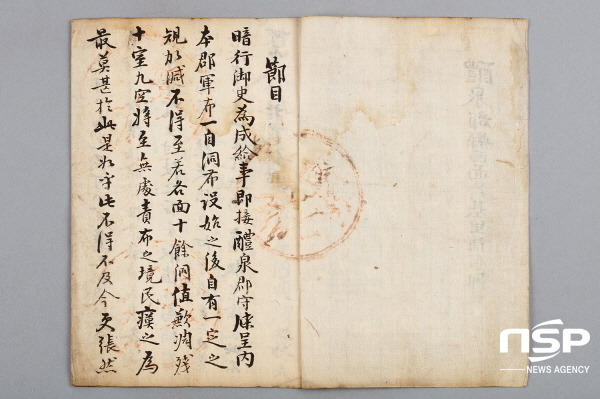 節目
暗行御史爲成給事卽接醴泉郡守牒呈內
本郡軍布一自洞布設始之後自有一定之
規加減不得至若各面十餘洞值歉凋殘
十室九空將至無處責布之境民瘼之爲
最莫甚於此是如乎此不得不及今更張然
NSP
NEWS AGENCY